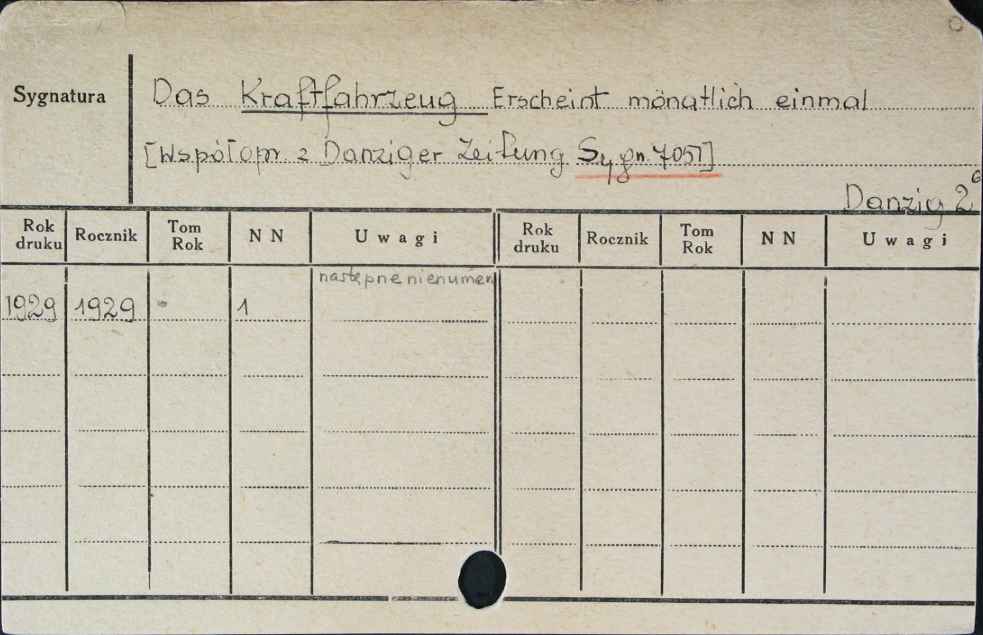 Sygnatura
Das Kraftfahrzeug Erscheint mönatlich einmal
[Współopr. z Danziger Zeitung Sygn. 7051]
Danzig 2°
Rok druku Rocznik Tom Rok N N Uwagi Rok druku Rocznik Tom Rok N N Uwagi
następne nienumer
1929 1929 - 1